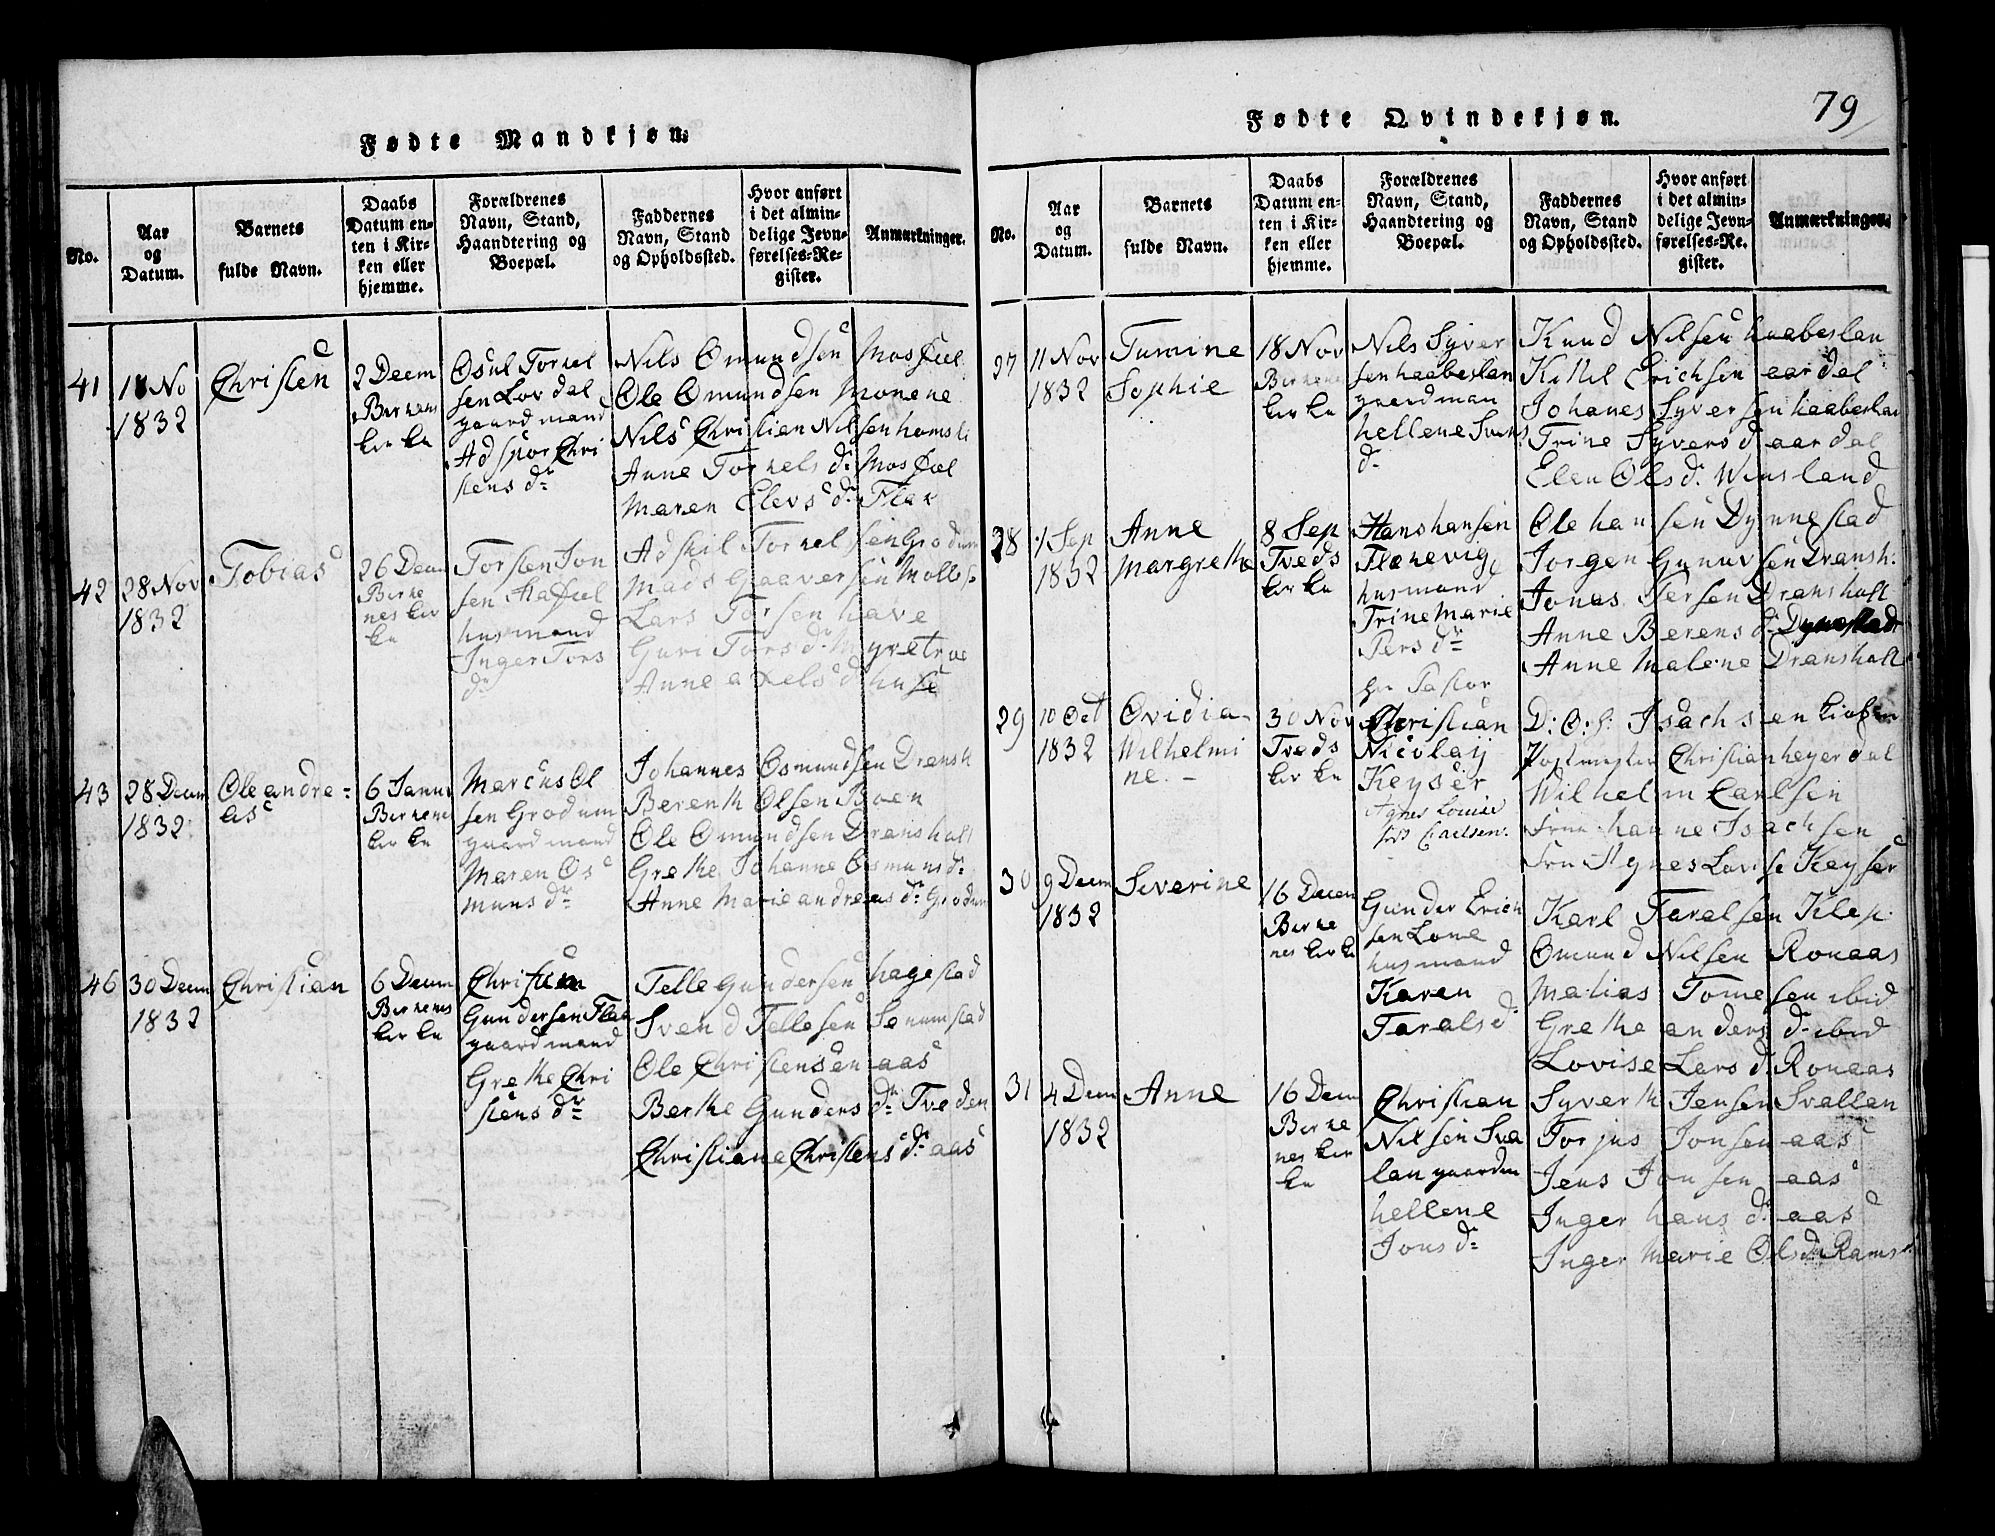 Fødte Mandkjøn.
No.
Aar
og
Datum.
Barnets
fulde Navn.
Daabs
Datum en-
ten i Kir-
ken eller
hjemme.
Forældrenes
Navn, Stand,
Haandtering og
Boepæl.
Faddernes
Navn, Stand
og Opholdssted.
Hvor anført
i det almin-
delige Jevn-
førelses-Re-
gister.
Anmærkninger.
41
11 No
1832
Christen
2 Decem
Birkenes
kirke
Osul Torkel
sen Lovdal
gaardmand
Chri
stens dr
Nils Omundsen Mosfiel
Ole Omundsen Monene
Nils Christian Nilsen
Anne Torkels dr Mosfiel
Maren Elevs dr Flak
42
28 Nov
1832
Tobias
26 Decem
Birke
nes kir
ke
Torsten Jon
sen
husmand
Inger Tors
dr
Adskil Torkelsen Grodum
Mads Gaaversen
Lars Torsen have
Guri Tors dr Myretroe
Anne axels dr huse
43
28 Decem
1832
Ole andre-
as
6 Janu
Birkenes
kirke
Marcus Ol
sen Grodum
gaardmand
Maren Os
muns dr
Johannes Osmundsen Dransh
Berenth Olsen Boen
Ole Omundsen Dransholt
Grethe Johanne Osmuns dr
Anne Marie andreas dr Grodum
46
30 Decem
1832
Christian
6 Decem
Birkenes
kirke
Christen
Gundersen Flak
gaardmand
Grethe Chri
stens dr
Telle Gundersen hagestad
Svend Tellesen Senumstad
Ole Christensen aas
Berthe Gunders dr Tveden
Christiane Christens dr aas
Fødte Qvindekjøn.
79
No.
Aar
og
Datum.
Barnets
fulde Navn.
Daabs
Datum en-
ten i Kir-
ken eller
hjemme.
Forældrenes
Navn, Stand,
Haandtering og
Boepæl.
Faddernes
Navn, Stand
og Opholdssted.
Hvor anført
i det almin-
delige Jevn-
førelses-Re-
gister.
Anmærkninger.
27
11 Nov
1832
Tumine
Sophie
18 Nov
Birkenes
kirke
Nils Syver
sen haabeslan
gaardman
hellene Svens
dr
Knud Nilsen haabeslan
Kittel Erichsen aardal
Johanes Syversen haabeslan
Trine Syvers dr aardal
Elen Ols dr Winsland
28
1 Sep
1832
Anne
Margrethe
8 Sep
Tveds
kirke
Hans hansen
Flakevig
husmand
Trine Marie
Pers dr
Ole hansen Dynnestad
Jorgen Gunuvsen Dransh:
Jonas Persen Dransholt
Anne Berens dr Dynestad
Anne Malene Dransholt
29
10 Oct
1832
Ovidia
Wilhelmi
ne. -
30 Nov
Tveds
kirke
hr Pastor
Christian
Nicolay
Keyser
Agnes Louise
Carlsen.
D: O: S: Isachsen
Postmester Christian heyerdal
Wilhelm Carlsen
Fru hanne Isachsen
Fru Agnes Lovise Keyser
30
9 Decem
1832
Severine
16 Decem
Birke
nes kirke
Gunder Erich
sen Lone
husmand
Karen
Tarals dr
Karl Taralsen Klep:
Omund Nilsen Ronaas
Matias Tomesen ibid
Grethe anders dr ibid
Lovise Lars dr Ronaas
31
4 Decem
1832
Anne
16 Decem
Birke
nes kir
ke
Christian
Nilsen Sva
lan gaarden
hellene
Jons dr
Syverth Jensen Svallan
Torjus Jonsen aas
Jens Jonsen aas
Inger hans dr aas
Inger Marie Ols dr Rams